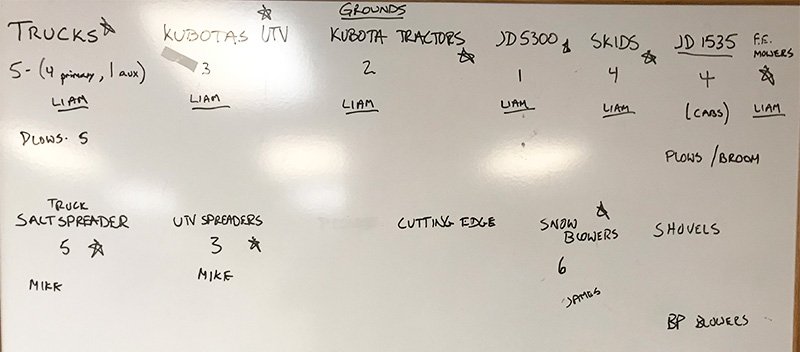 GROUNDS
TRUCKS☆ KUBOTAS UTV☆ KUBOTA TRACTORS☆ JD5300☆ SKIDS☆ JD 1535 F.E. MOWERS☆
5- (4 primary, 1 aux) 3 2 1 4 4
LIAM LIAM LIAM LIAM LIAM (CABS) LIAM
PLOWS· 5
PLOWS / BROOM
TRUCK
SALT SPREADER UTV SPREADERS CUTTING EDGE SNOW BLOWERS☆ SHOVELS
5 ☆ 3 ☆ 6
MIKE MIKE JAMES
BP BLOWERS